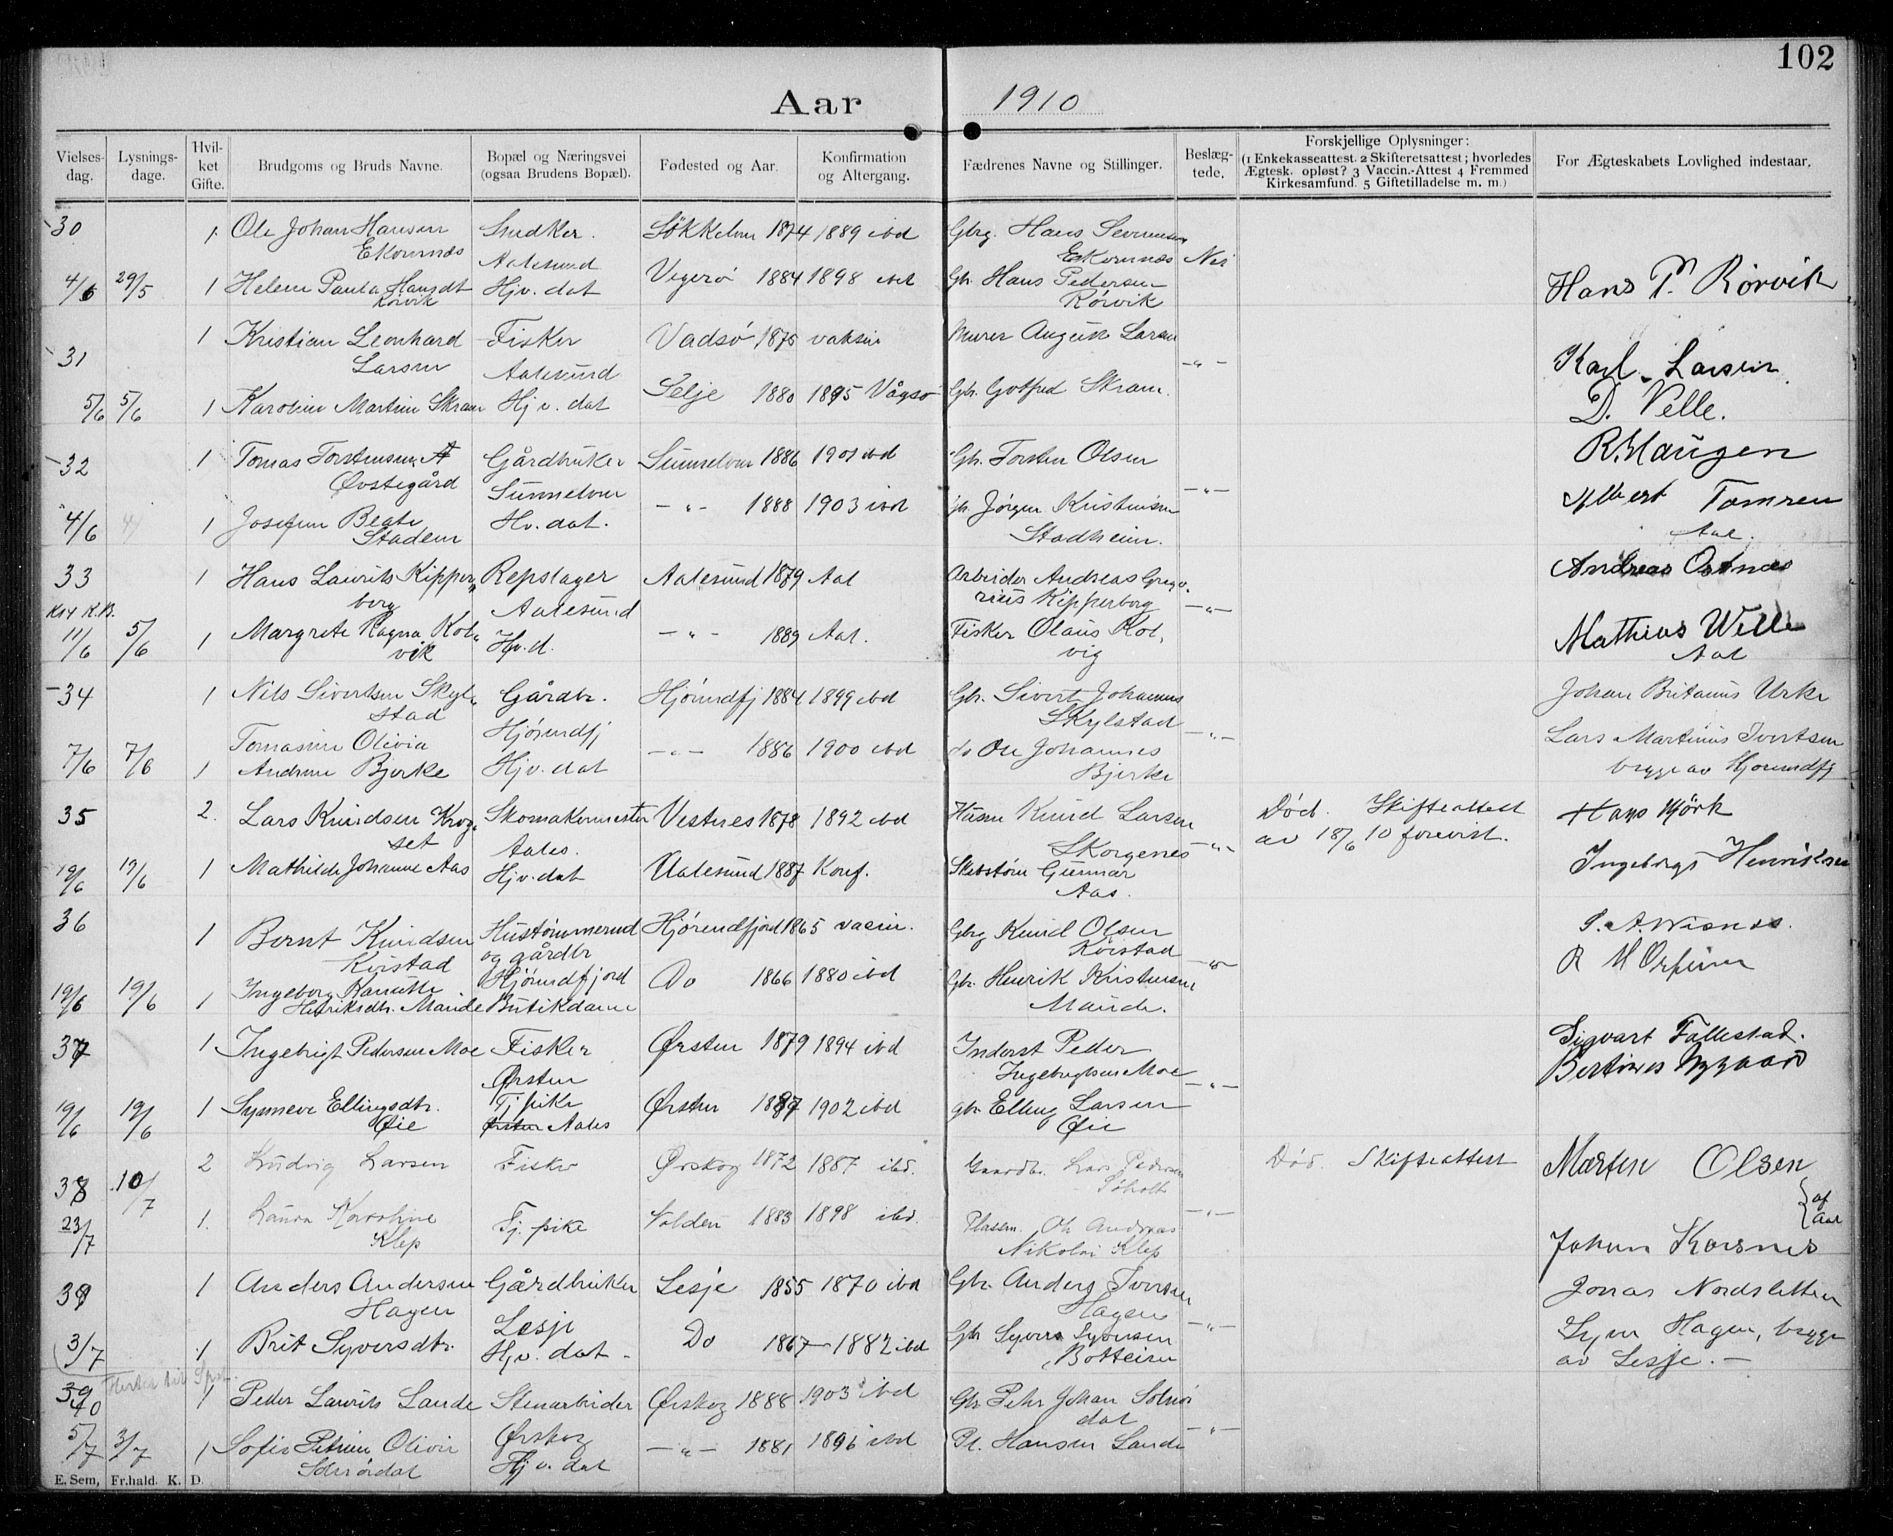 102
Aar 1910
Vielses-dag. Lysnings-dage. Hvil-ket Gifte. Brudgoms og Bruds Navne. Bopæl og Næringsvei (ogsaa Brudens Bopæl). Fødested og Aar. Konfirmation og Altergang. Fædrenes Navne og Stillinger. Beslæg-tede. Forskjellige Oplysninger: (1 Enkekasseattest. 2 Skifteretsattest; hvorledes Ægtesk. opløst? 3 Vaccin.-Attest 4 Fremmed Kirkesamfund. 5 Giftetilladelse m. m.) For Ægteskabets Lovlighed indestaar.
30 1 Ole Johan Hansen Snedker. 1874 1889 ibd Gbrg. Hans Severinsen
Ekornnes Aalesund Ekornnes Nei
4/6 29/5 1 Helene Paula Hansdt Hjv. dat Vegerø 1884 1898 ibd Gbr. Hans Pedersen Hans P. Rørvik
Rørvik Rørvik
31 1 Kristian Leonhard Fisker Vadsø 1875 vaksin Murer August Larsen
Larsen Aalesund -"- Karl Larsen
5/6 5/6 1 Karoline Martine Skram Hjv. dat Selje 1880 1895 Vågsø Gbr. Gotfred Skram. D. Velle.
32 1 Tomas Torstensen Gårdbruker 1886 1901 ibd Gbr. Torsten Olsen R. Haugen
Øvstegård -"- Albert Tomren
4/6 1 Josefine Beate Hv. dat. -"- 1888 1903 ibd Jørgen Kristensen
Stadem Stadheim. Aal.
33 1 Hans Laurits Kipper Repslager Aalesund 1879 Aal Arbeider Andreas Grego Andreas Ostnes
berg Aalesund rius Kipperberg -"-
11/6 5/6 1 Margrete Ragna Kol Hjv. d. -"- 1889 Aal. Fisker Olaus Kol Mathias Welle
vik vig Aal
34 1 Nils Sivertsen Skyl Gårdbr. Hjørundfj 1884 1899 ibd Gbr. Sivert Johannes Johan Britanus Urke
stad Hjørundfj Skylstad -"-
7/6 7/6 Tomasine Olivia -"- 1886 1900 ibd do Ole Johannes Lars Martinus Ivertsen
1 Andrine Bjerke Hjv. dat Bjerke begge av Hjørundfj
35 2. Lars Knudsen Skomakermester Vestnes 1878 1892 ibd Husm Knud Larsen Død. Skifteattest Hans Mørk
set Aales. Skorgenes -"- av 18/6 10 forevist.
19/6 19/6 1 Mathilde Johanne Aas Hjv. dat Aalesund 1887 Konf. Skibstøm Gunnar Ingeborg Henriksen
Aas.
36 1 Bernt Knudsen Hustømmermd Hjørundfjord 1865 vacin. Gbrg Knud Olsen
Kvistad og gårdbr Kvistad
19/6 19/6 1 Ingeborg Hjørundfjord Do 1866 1880 ibd Gbr. Henrik Kristensen
Henriksdtr. Maude Butikdame Maude.
37 1 Ingebrigt Pedersen Moe Fisker Ørsten 1879 1894 ibd Inderst Peder Sigvart Follestad.
Ørsten Ingebrigtsen Moe -"- Bertines Nygaard
19/6 19/6 1 Synneve Ellingsdtr. Tj pike Ørsten 1887 1902 ibd gbr. Elling Larsen
Øie Aales Øie
38 10/7 2 Ludvig Larsen Fisker Ørskog 1872 1887 ibd. Gaardb. Lars Pedersen Død. Skifteattest Marten Olsen
Søholt
23/7 1. Laura Karoline Tj. pike Volden 1883 1898 ibd. Plassm. Ole Andreas -"- af Aal
Klep Nikolai Klep Johan Korsnes
39 1 Anders Andersen Gårdbruker Lesje 1855 1870 ibd Gbr. Anders Iversen Jonas Nordsletten
Hagen Lesje Hagen -"-
3/7 1 Brit Syversdtr. Hjv. dat - Do 1867 1882 ibd Gbr Syver Syversen Syver Hagen, begge
Botheim av Lesje. -
40 1 Peder Laurits Lande Stenarbeider Ørskog 1888 1903 ibd Gbr Peder Johan Solnør
Ørskog dal -"-
5/7 3/7 1 Sofie Petrine Olivie Hjv. dat -"- 1881 1896 ibd Pl. Hansen Lande
Solnørdal
E. Sem, Fr.hald. K. D.